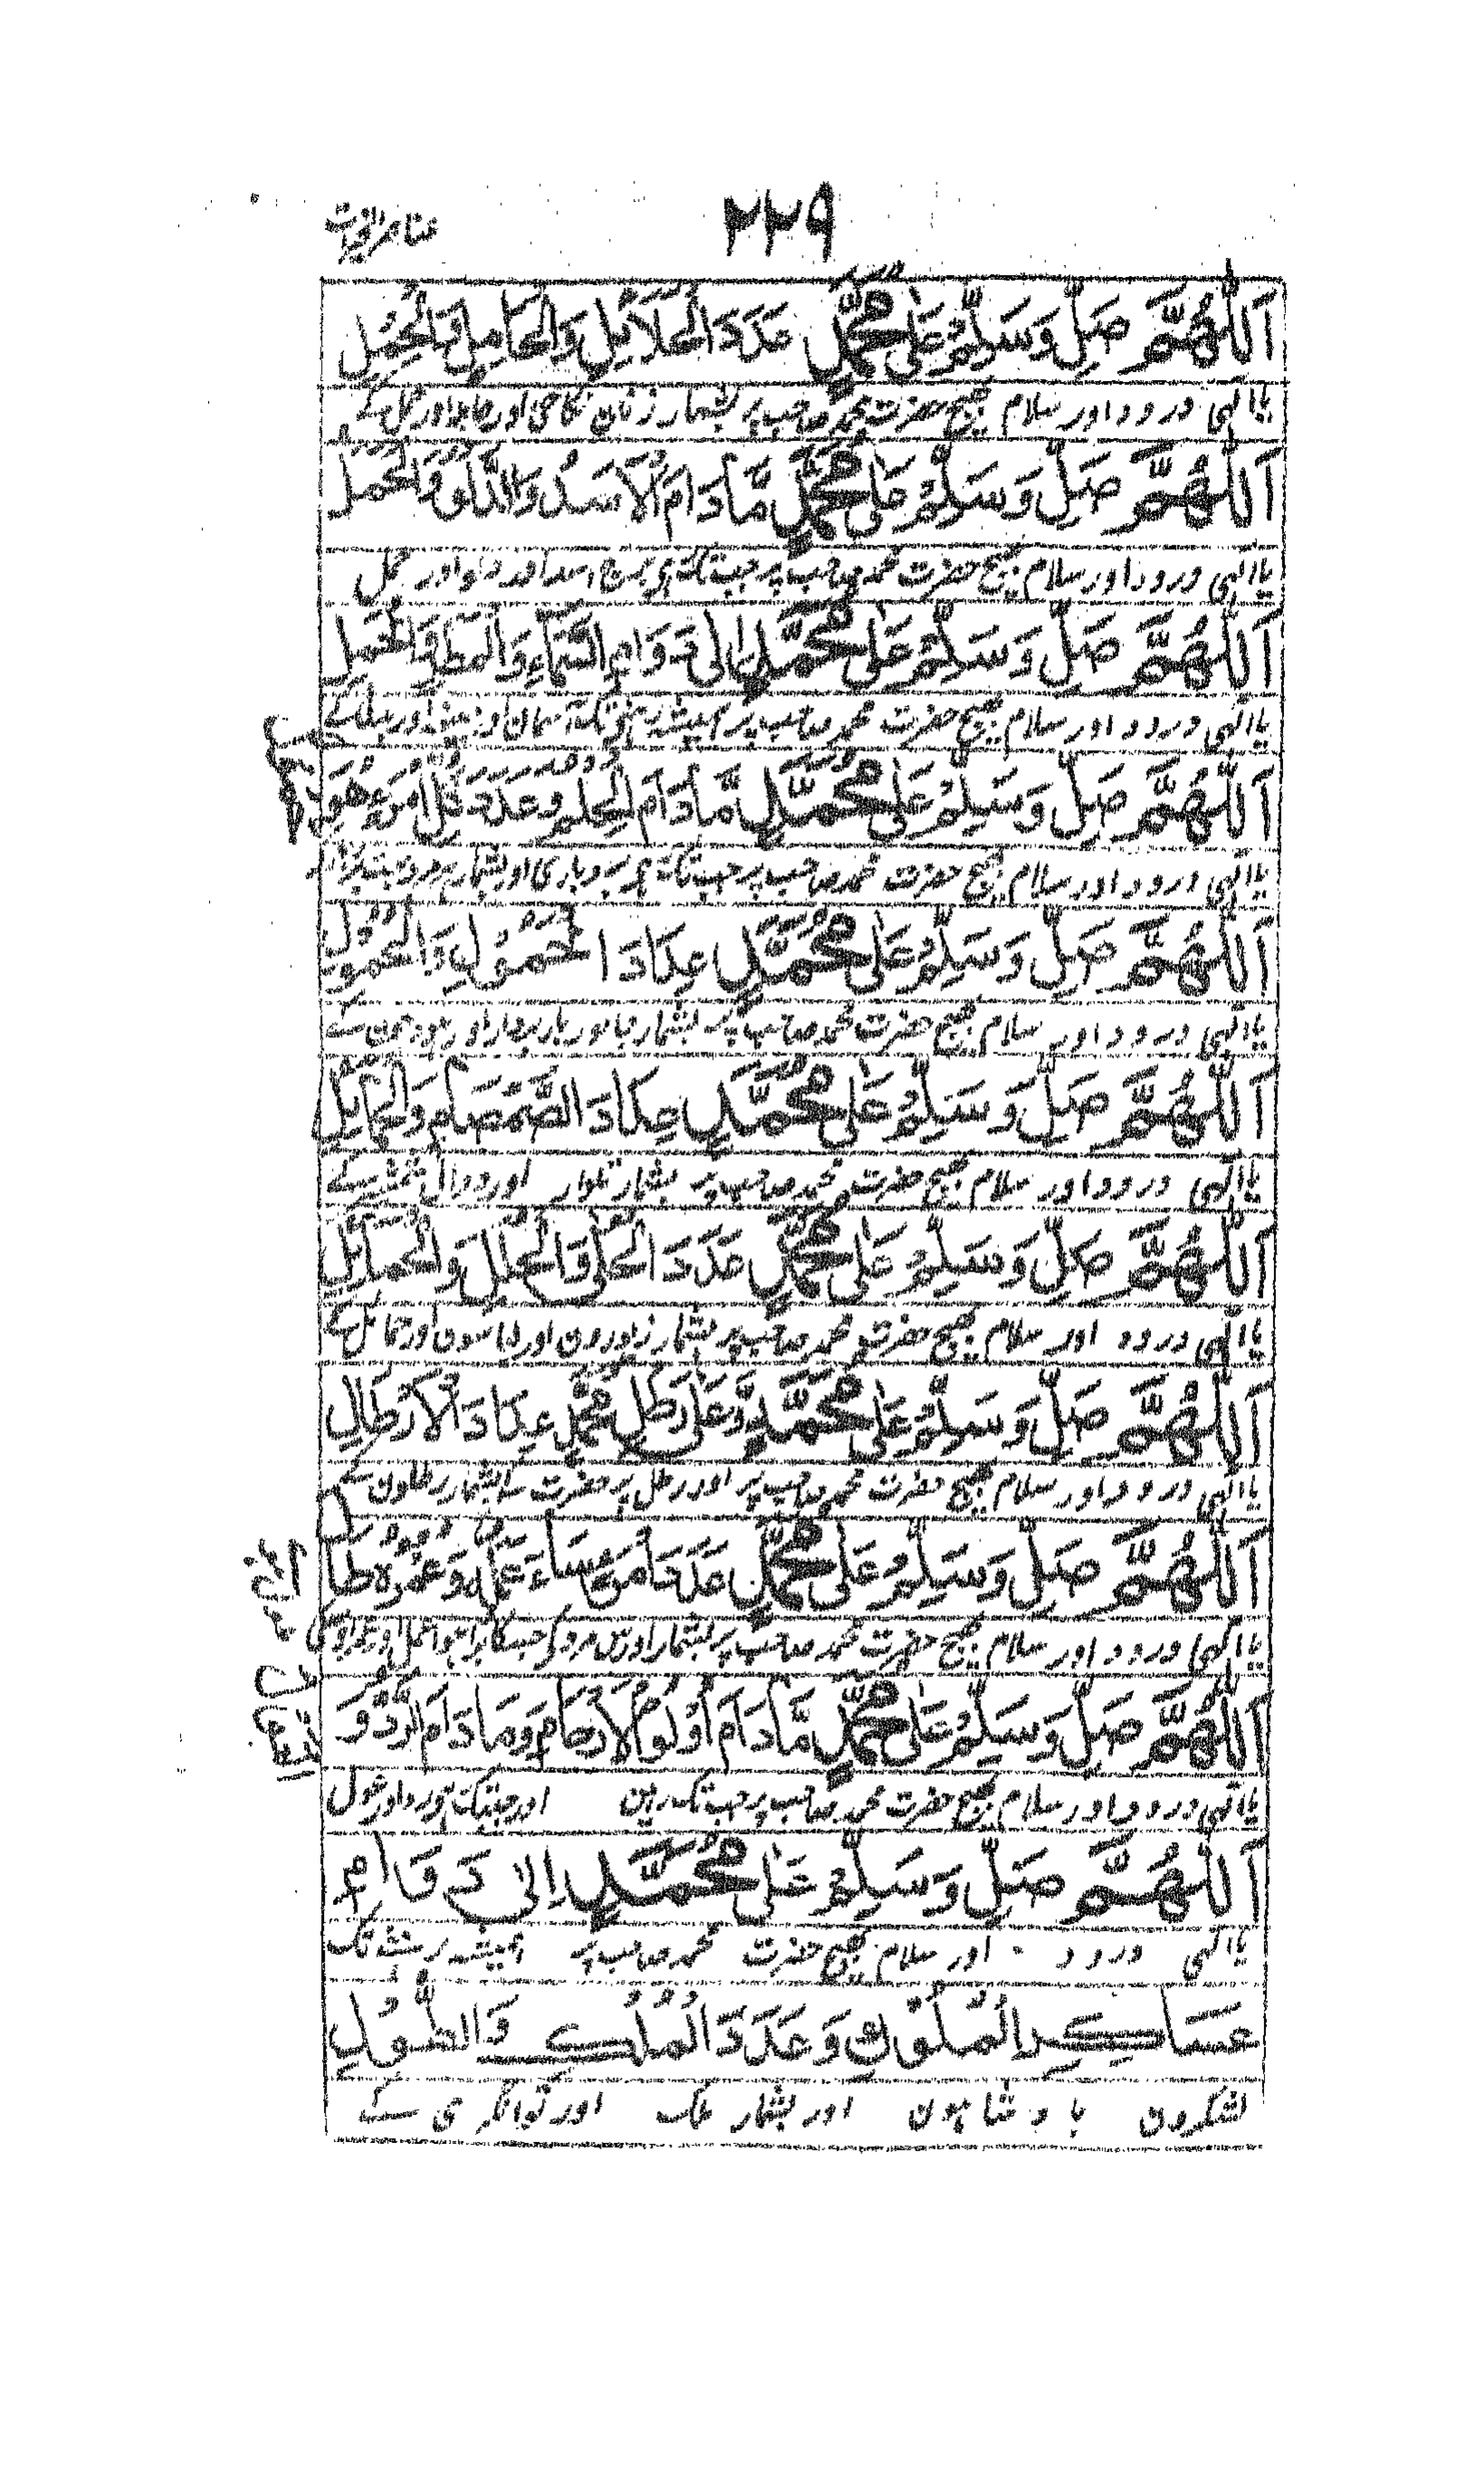 ۲۲۹
اَللّٰهُمَّ صَلِّ وَسَلِّمْ عَلٰی مُحَمَّدٍ عَدَدَ الْحَلَائِلِ وَالْحَامِلِ وَالْحَمْلِ
یا الٰہی درود اور سلام بھیج حضرت محمد صاحب پر بشمار زنان نکاحی اور حاملہ اور حمل کے
اَللّٰهُمَّ صَلِّ وَسَلِّمْ عَلٰی مُحَمَّدٍ مَّا دَامَ الْاَسَدُ وَالدَّلْوُ وَالْحَمَلُ
یا الٰہی درود اور سلام بھیج حضرت محمد صاحب پر جب تک ہی برج اسد اور دلو اور حمل
اَللّٰهُمَّ صَلِّ وَسَلِّمْ عَلٰی مُحَمَّدٍ اِلٰی دَوَامِ السَّمَاءِ وَالْمَطَرِ
یا الٰہی درود اور سلام بھیج حضرت محمد صاحب پر ہمیشہ آسمان اور مینہ اور
اَللّٰهُمَّ صَلِّ وَسَلِّمْ عَلٰی مُحَمَّدٍ مَّا دَامَ الْحِلْمُ وَعَدَدَ
یا الٰہی درود اور سلام بھیج حضرت محمد صاحب پر جب تک ہی بردباری اور بشمار
اَللّٰهُمَّ صَلِّ وَسَلِّمْ عَلٰی مُحَمَّدٍ عِدَادَ الْحَمُوْلِ وَالْحُمُوْلِ
یا الٰہی درود اور سلام بھیج حضرت محمد صاحب پر بشمار جانور باربردار اور
اَللّٰهُمَّ صَلِّ وَسَلِّمْ عَلٰی مُحَمَّدٍ عِدَادَ الصَّمْصَامِ وَالْحَمَائِلِ
یا الٰہی درود اور سلام بھیج حضرت محمد صاحب پر بشمار تلوار اور دوال
اَللّٰهُمَّ صَلِّ وَسَلِّمْ عَلٰی مُحَمَّدٍ عَدَدَ الْحُلِیِّ وَالْحُلَلِ وَالْحَمَائِلِ
یا الٰہی درود اور سلام بھیج حضرت محمد صاحب پر بشمار زیورون اور لباسون اور حمائل کے
اَللّٰهُمَّ صَلِّ وَسَلِّمْ عَلٰی مُحَمَّدٍ وَّعَلٰی رَطْلِ مُحَمَّدٍ عِدَادَ الْاَرْطَالِ
یا الٰہی درود اور سلام بھیج حضرت محمد صاحب پر اور رطل پر حضرت کے بشمار رطلون کے
اَللّٰهُمَّ صَلِّ وَسَلِّمْ عَلٰی مُحَمَّدٍ عَدَدَ مَنْ سَاءَ عَمَلُهٗ وَعُمْرُهٗ طَالَ
یا الٰہی درود اور سلام بھیج حضرت محمد صاحب پر بشمار اوس مرد کی جسکا برا ہوا عمل اور عمر
اَللّٰهُمَّ صَلِّ وَسَلِّمْ عَلٰی مُحَمَّدٍ مَّا دَامَ اُولُوا الْاَرْحَامِ وَمَا دَامَ
یا الٰہی درود اور سلام بھیج حضرت محمد صاحب پر جب تک رہین اور جبتک
اَللّٰهُمَّ صَلِّ وَسَلِّمْ عَلٰی مُحَمَّدٍ اِلٰی دَوَامِ
یا الٰہی درود اور سلام بھیج حضرت محمد صاحب پر ہمیشہ رہنے تک
عَسَاكِرِ الْمُلُوْكِ وَعَدَدَ الْمُلْكِ وَالطَّوْلِ
لشکرون بادشاہون اور بشمار ملک اور توانگری کے